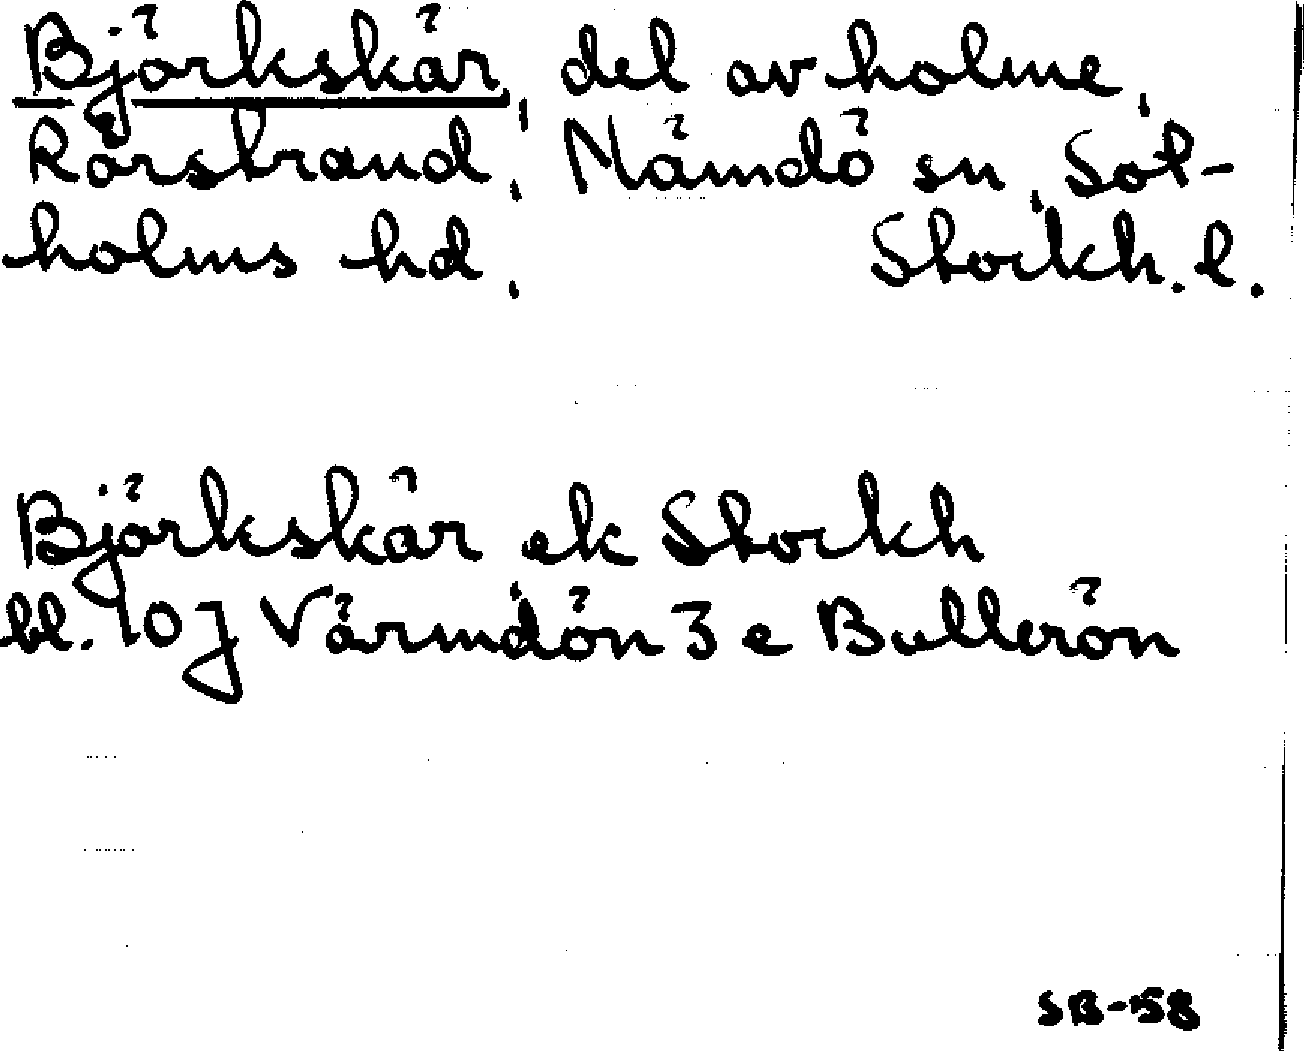 Björkskär, del av holme,
Rörstrand, Nämdö sn, Sot-
holms hd, Stockh. l.
Björkskär ek Stockh
bl. 10J Värmdön 3e Bullerön
SB-58